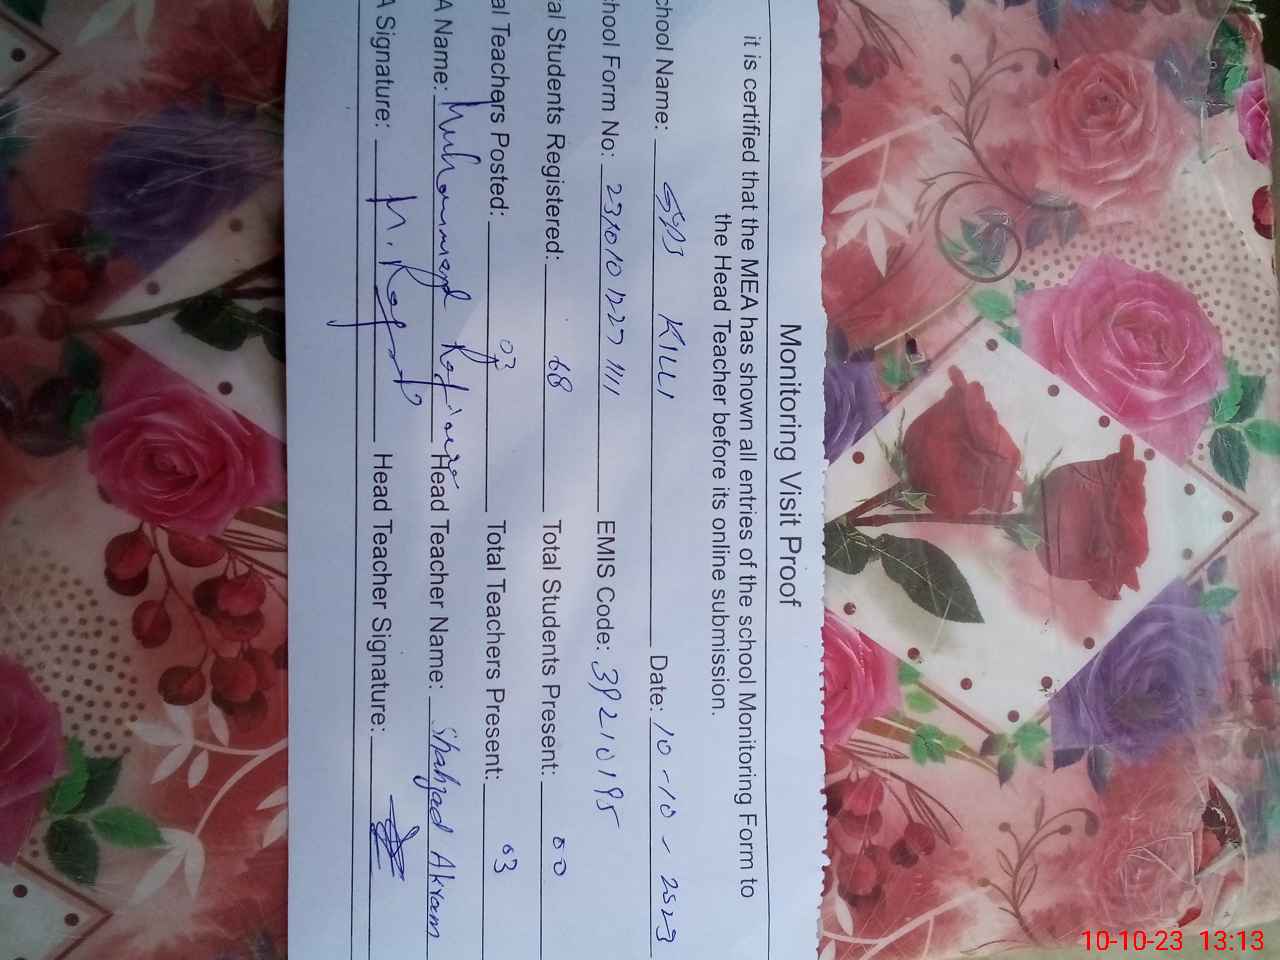 Monitoring Visit Proof
it is certified that the MEA has shown all entries of the school Monitoring Form to
the Head Teacher before its online submission.
chool Name: KILLI Date: 10-10-2023
hool Form No: 231010 1227 1111 EMIS Code: 39210195
al Students Registered: 68 Total Students Present: 00
al Teachers Posted: 03 Total Teachers Present: 03
A Name: Muhammad Head Teacher Name: Shahzad Akram
A Signature: Head Teacher Signature:
10-10-23 13:13